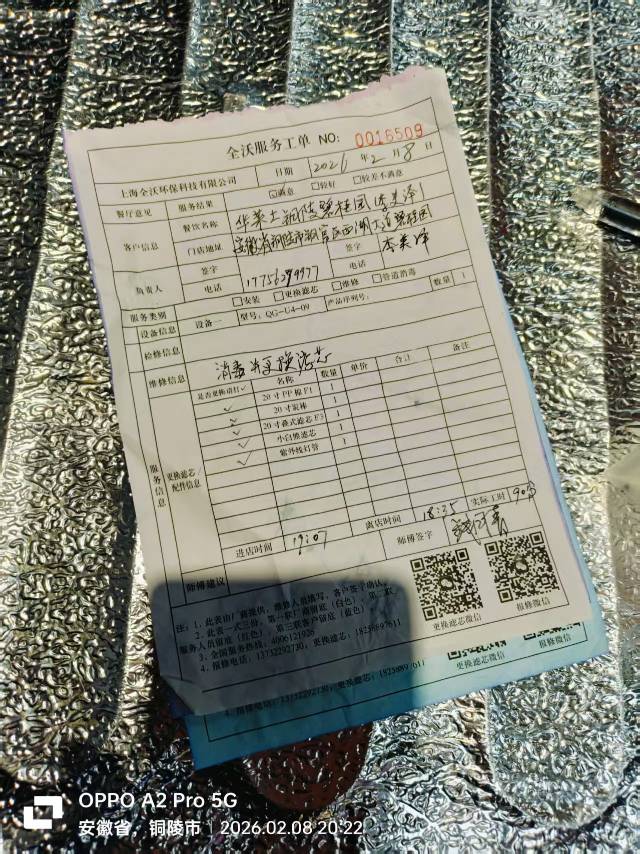 全沃服务工单 NO: 0016509
上海全沃环保科技有限公司 日期 2026 年 2 月 8 日
餐厅意见 服务结果 ☑满意 □较好 □较差不满意
客户信息 餐饮名称 华莱士铜陵碧桂园(李美泽)
门店地址 安徽省铜陵市铜官区西湖大道碧桂园
负责人 签字 签字 李美泽
电话 电话
服务类别 □安装 □更换滤芯 □维修 □管道消毒
设备信息 设备一 型号:QG-U4-09 产品序列号: 数量 1
检修信息
维修信息 消毒并更换滤芯
服务信息 更换滤芯/配件信息 是否更换请打✓ 名称 数量 单价 合计 备注
✓ 20寸PP棉F1 1
✓ 20寸炭棒 1
✓ 20寸叠式滤芯F3 1
✓ 小白熊滤芯 1
✓ 紫外线灯管 1
进店时间 离店时间 18:35 实际工时
师傅建议 师傅签字
更换滤芯微信 报修微信
注:1、此表由厂商提供,维修人员填写,客户签字确认。
2、此表一式三份,第一联厂商留底(白色),第二联
服务人员留底(红色),第三联客户留底(蓝色)
3、全国服务热线:4006121926
4、报修电话:13732292730,更换滤芯:18258897611
更换滤芯微信 报修微信
4、报修电话:13732292730,更换滤芯:18258897611
OPPO A2 Pro 5G
安徽省,铜陵市 | 2026.02.08 20:22